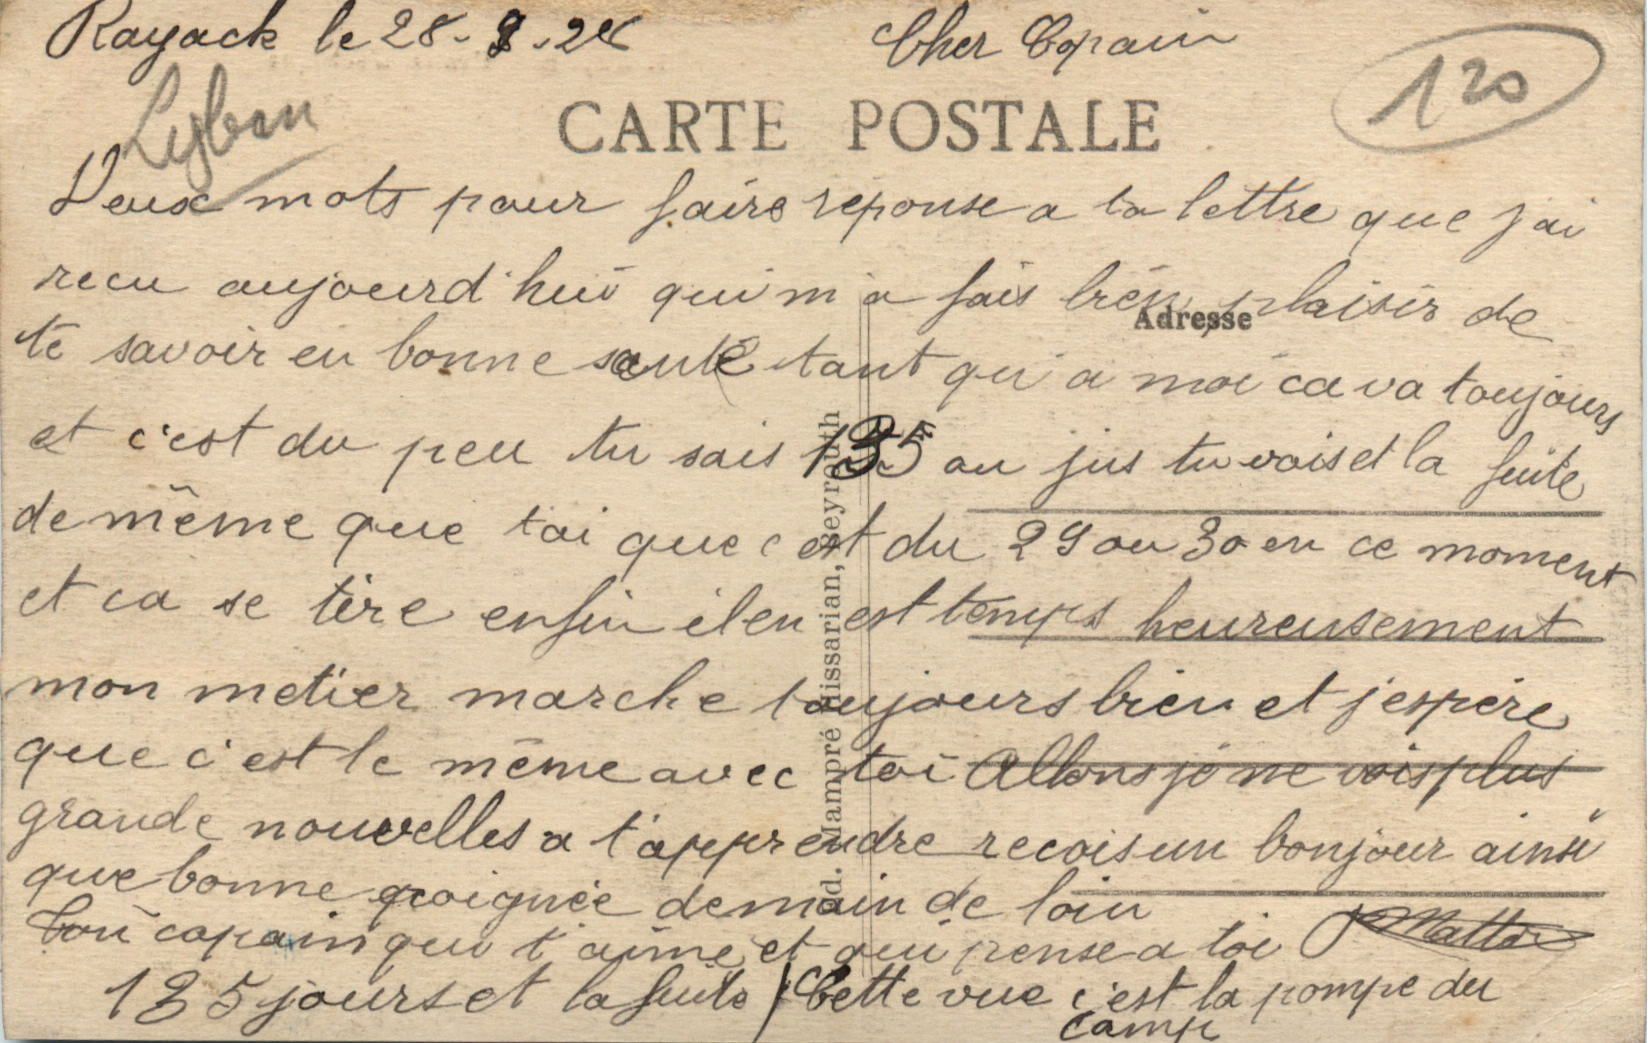 Rayack le 28-8-28
Cher Copain
120
Lyban
CARTE POSTALE
Deux mots pour faire reponse a ta lettre que j'ai
recu aujourd'hui qui m'a fais bien plaisir de
Adresse
te savoir en bonne santé tant qu'a moi ca va toujours
et c'est du peu tu sais 135 au jus tu vois et la fuite
de même que toi que c est du 29 ou 30 en ce moment
et ca se tire enfin il en est temps heureusement
mon metier marche toujours bien et j'espère
que c'est le même avec toi Allons je ne vois plus
grande nouvelles a t'apprendre recois un bonjour ainsi
que bonne poignée de main de loin
Ton copain qui t'aime et qui pense a toi
135 jours et la fuite / Cette vue c'est la pompe du
camp
Hissarian, Beyrouth